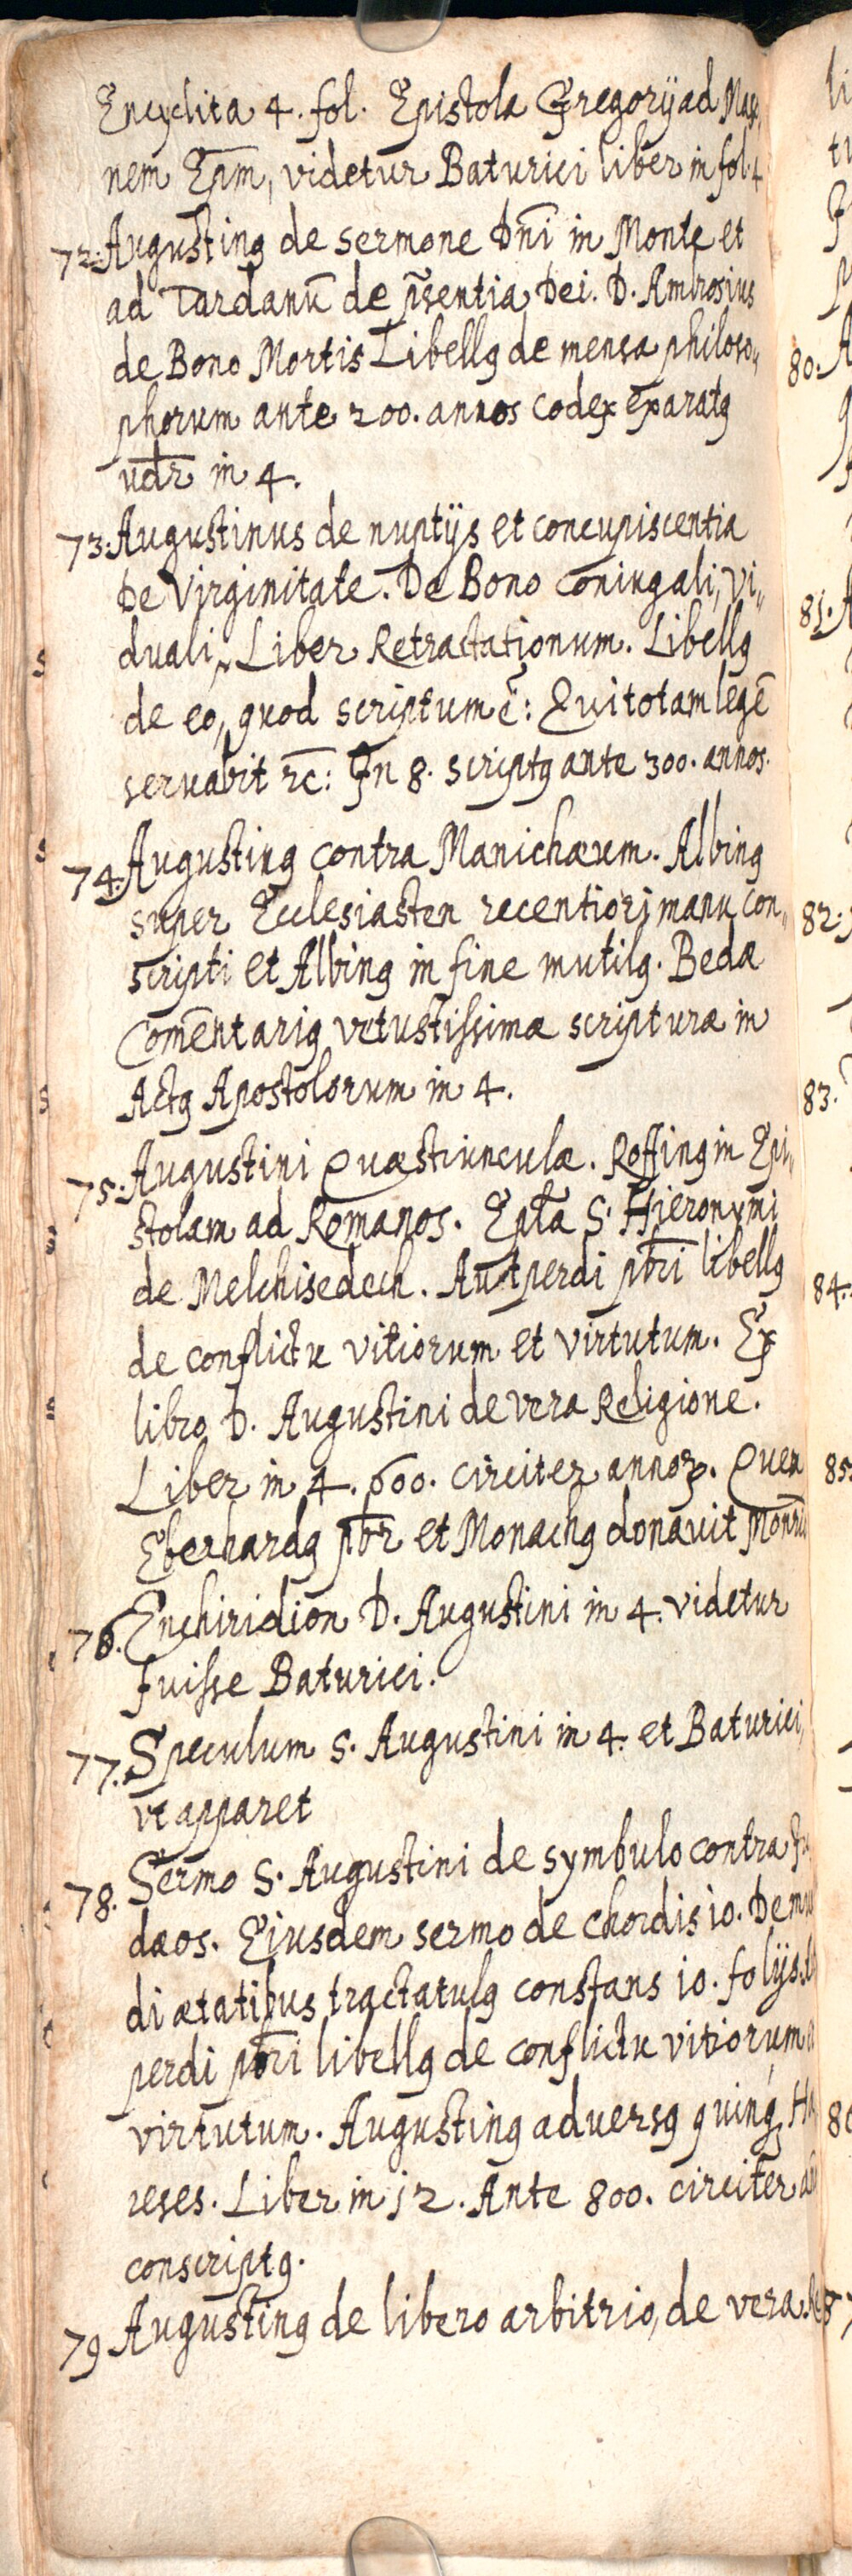 Encyclita 4. fol. Epistola Gregorij ad Max
nem Epm̄, videtur Baturici liber in fol. 4
72. Augustinꝯ de sermone Dn̄i in Monte et
ad Dardanū de p̄sentia Dei. D. Ambrosius
de Bono Mortis Libellꝯ de mensa philoso„
phorum ante 200. annos codex exaratꝯ
vdr̄ in 4.
73. Augustinus de nuptijs et concupiscentia
De Virginitate. De Bono coniugali, vi„
duali, Liber Retractationum. Libellꝯ
de eo, quod scriptum ē: Qui totam legē
seruabit ꝛc: In 8. scriptꝯ ante 300. annos.
74. Augustinꝯ contra Manichæum. Albinꝯ
super Ecclesiasten recentiori manu con„
scripti et Albinꝯ in fine mutilꝯ. Bedæ
Com̄entariꝯ vetustissimæ scripturæ in
Actꝯ Apostolorum in 4.
75. Augustini Quæstiunculæ. Roffinꝯ in Epi„
stolam ad Romanos. Ep̄la S. Hieronymi
de Melchisedech. Autperdi pb̄ri libellꝯ
de conflictu vitiorum et virtutum. Ex
libro D. Augustini de vera Religione.
Liber in 4. 600. circiter annoꝝ. Quem
Eberhardꝯ pb̄r et Monachꝯ donauit Monr̄io
76. Enchiridion D. Augustini in 4. videtur
fuisse Baturici.
77. Speculum S. Augustini in 4. et Baturici,
vt apparet
78. Sermo S. Augustini de symbulo contra Iu
dæos. Eiusdem sermo de chordis 10. De mun
di ætatibus tractatulꝯ constans 10. folijs.
perdi pb̄ri libellꝯ de conflictu vitiorum
virtutum. Augustinꝯ aduersꝯ quinqꝫ Hæ
reses. Liber in 12. Ante 800. circiter an
conscriptꝯ.
79 Augustinꝯ de libero arbitrio, de vera Re
80.
81.
82.
83.
84.
85.